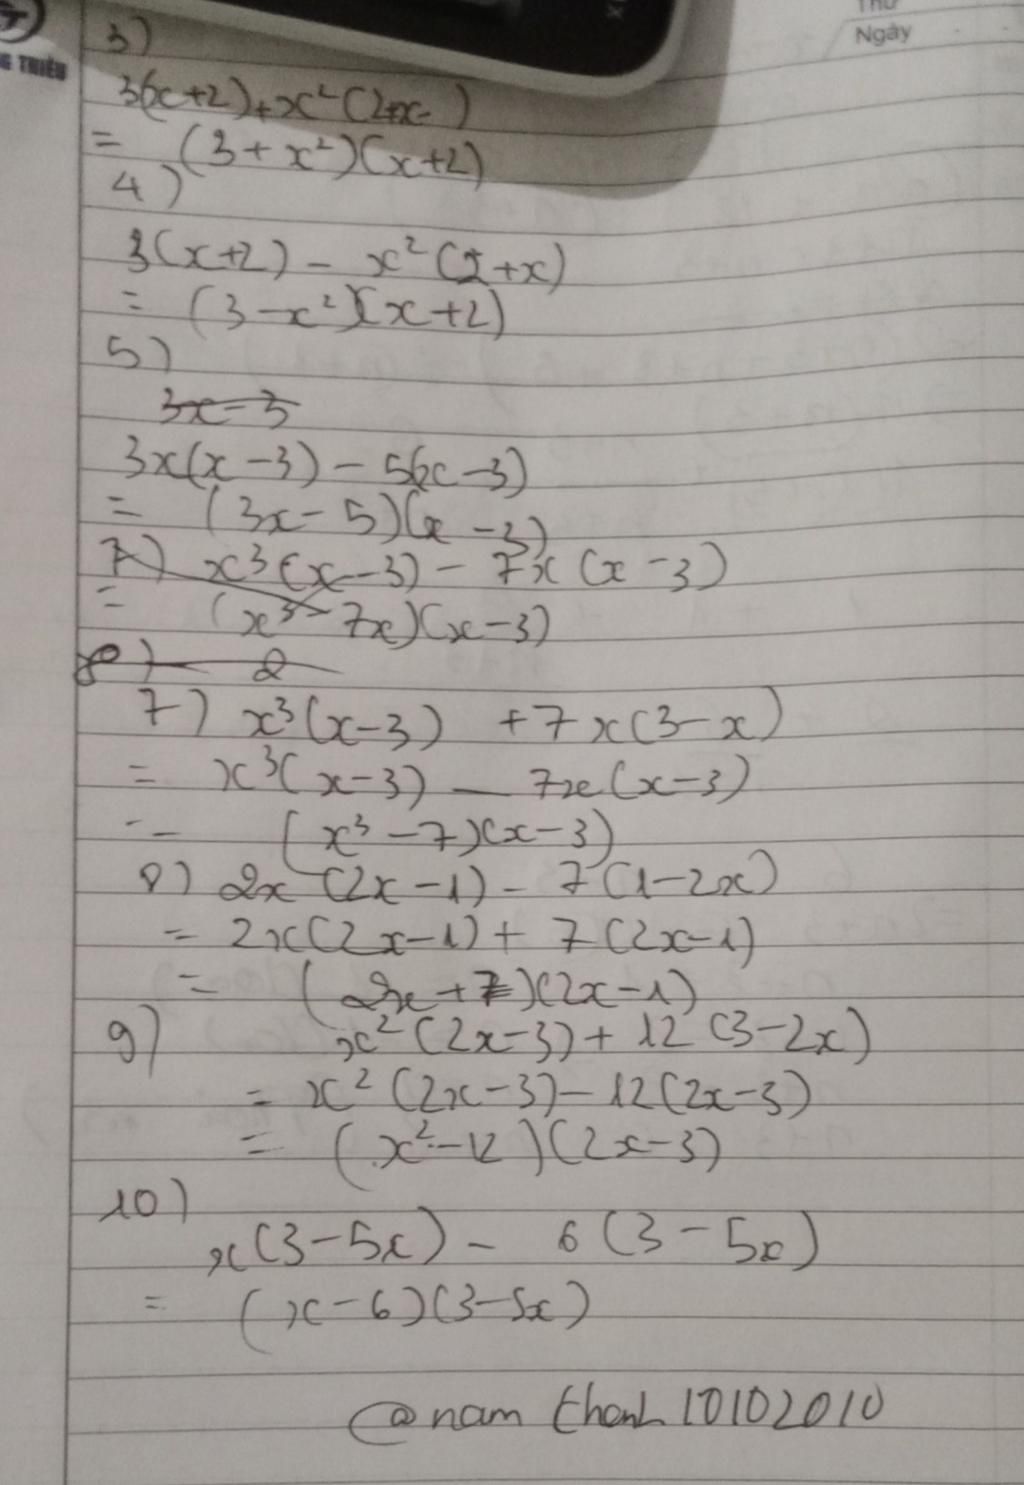 Thứ
Ngày
G THIỀU
3)
3(x+2)+x²(2+x)
= (3+x²)(x+2)
4)
3(x+2) - x²(2+x)
= (3-x²)(x+2)
5)
3x-3
3x(x-3) - 5(x-3)
= (3x-5)(x-3)
7) x³(x-3) - 7x(x-3)
= (x³-7x)(x-3)
8) 2
7) x³(x-3) +7x(3-x)
= x³(x-3) - 7x(x-3)
= (x³-7)(x-3)
8) 2x(2x-1) - 7(1-2x)
= 2x(2x-1) + 7(2x-1)
= (2x+7)(2x-1)
9) x²(2x-3) + 12(3-2x)
= x²(2x-3) - 12(2x-3)
= (x²-12)(2x-3)
10)
x(3-5x) - 6(3-5x)
= (x-6)(3-5x)
@nam thanh 10102010